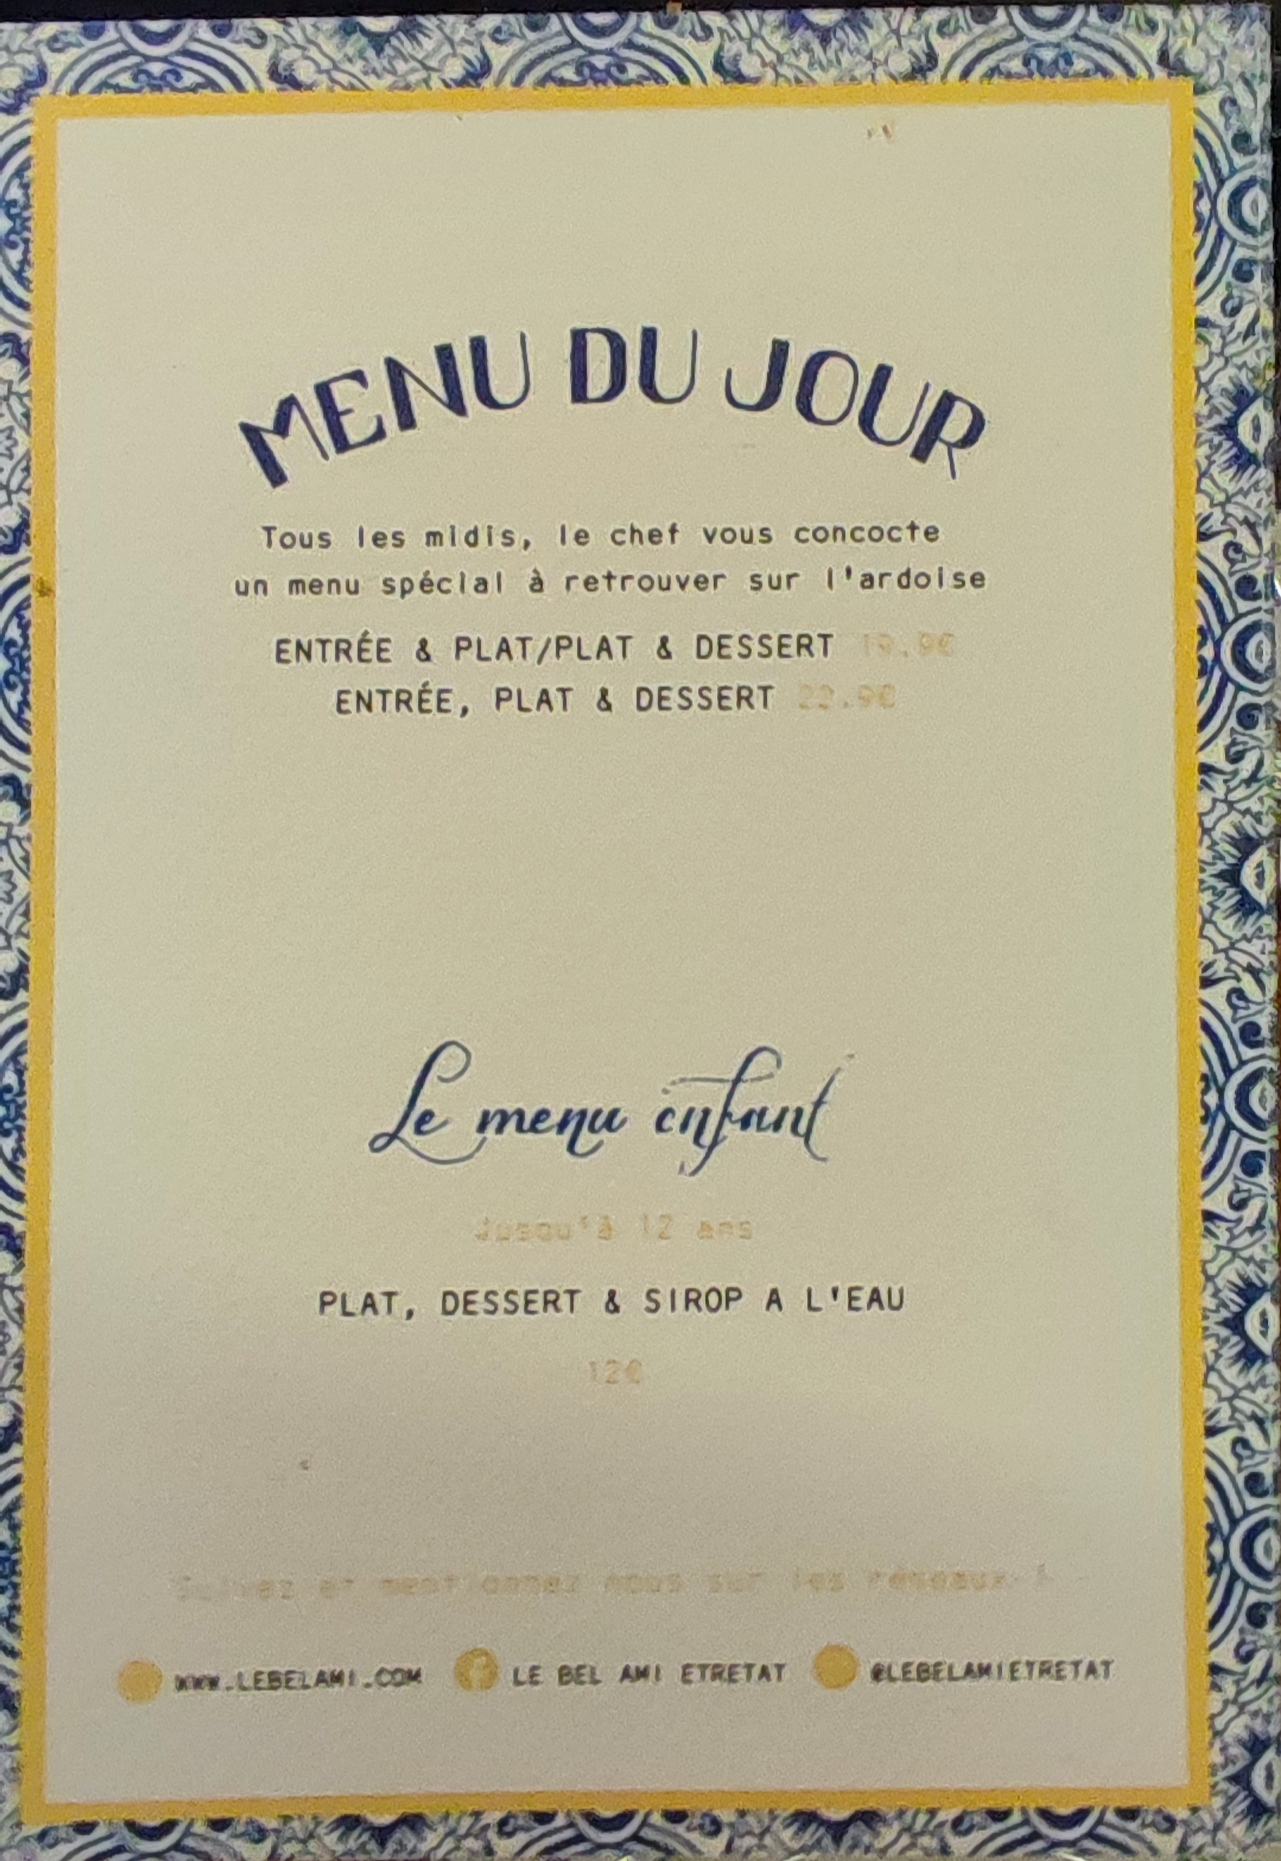 MENU DU JOUR
Tous les midis, le chef vous concocte
un menu spécial à retrouver sur l'ardoise
ENTRÉE & PLAT/PLAT & DESSERT 19.9€
ENTRÉE, PLAT & DESSERT 22.9€
Le menu enfant
Jusqu'à 12 ans
PLAT, DESSERT & SIROP A L'EAU
12€
Suivez et mentionnez nous sur les réseaux !
WWW.LEBELAMI.COM LE BEL AMI ETRETAT @LEBELAMIETRETAT